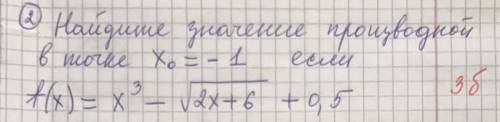 ② Найдите значение производной
в точке x₀ = - 1 если
f(x) = x³ - √(2x+6) + 0,5
3б